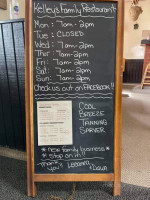 Kelley's Family Restaurant
Mon: 7am-2pm
Tue: CLOSED
Wed: 7am-2pm
Thur: 7am-2pm
Fri: 7am-2pm
Sat: 7am-2pm
Sun: 7am-2pm
Check us out on FACEBOOK!!
COOL
BREEZE
TANNING
SARVER
* new family business *
* stop on in! *
Thank
you's